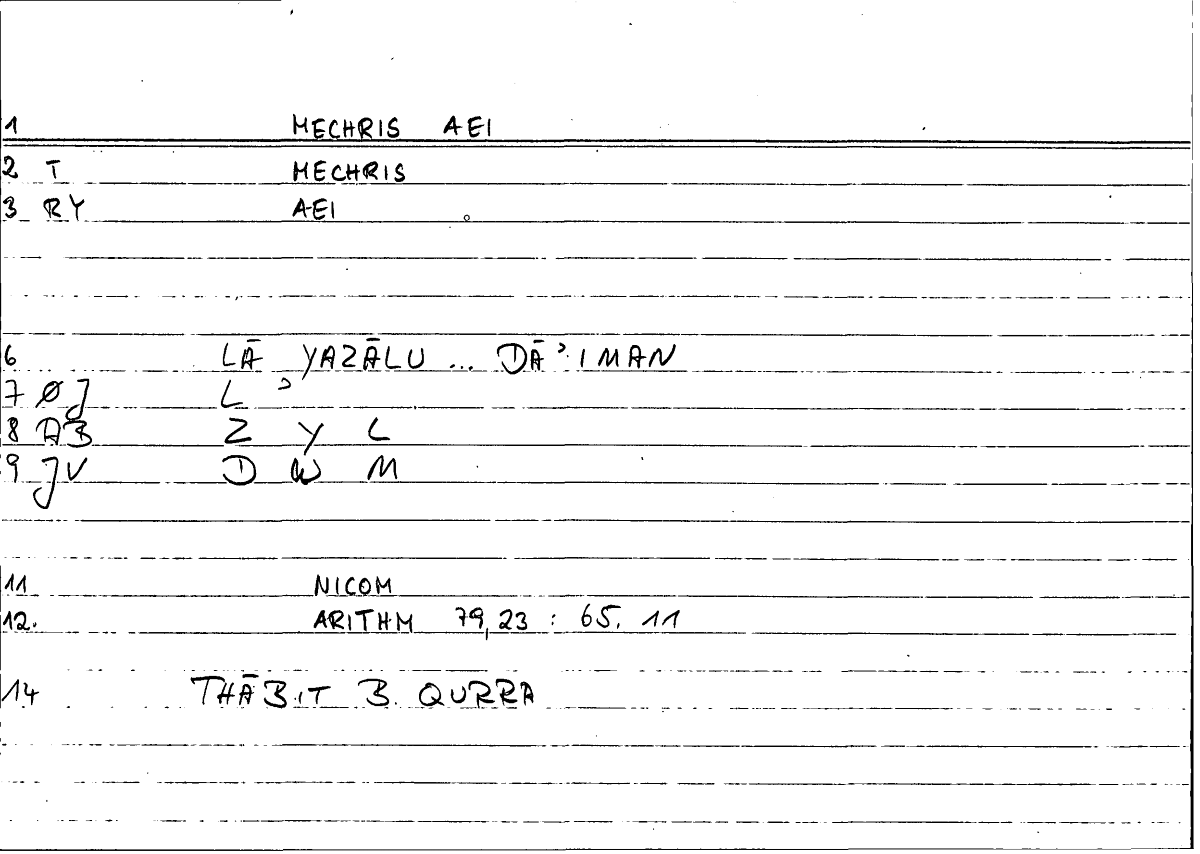 1 MECHRIS AEI
2 T MECHRIS
3 RY AEI
6 LĀ YAZĀLU ... DĀʾIMAN
7 ØJ L ʾ
8 AB Z Y L
9 JV D W M
11 NICOM
12. ARITHM 79,23 : 65. 11
14 THĀBIT B. QURRA